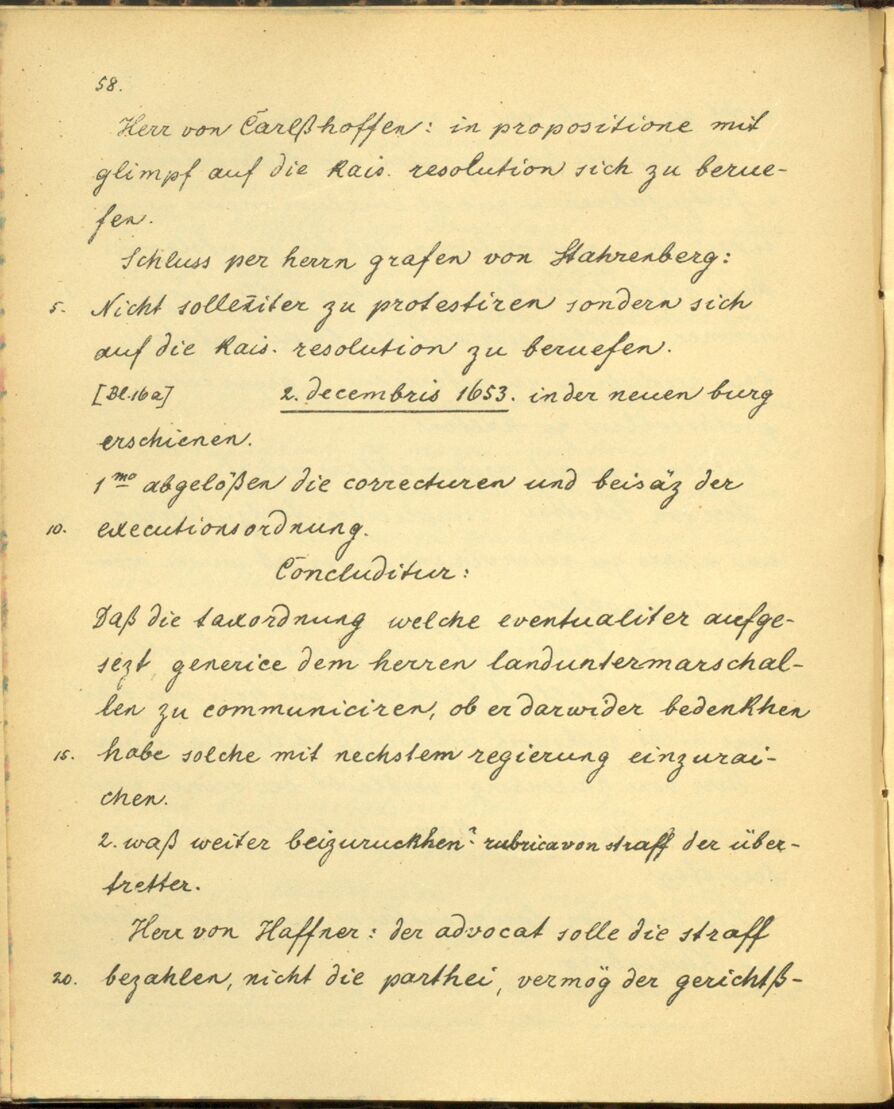 58.
Herr von Carlßhoffen: in propositione mit
glimpf auf die kais. resolution sich zu berue-
fen.
Schluss per herrn grafen von Stahrenberg:
5. Nicht solleniter zu protestiren sondern sich
auf die kais. resolution zu beruefen.
[Bl. 16a] 2. decembris 1653. in der neuen burg
erschienen.
1mo abgelößen die correcturen und beisäz der
10. executionsordnung.
Concluditur:
Daß die taxordnung welche eventualiter aufge-
sezt, generice dem herren landuntermarschal-
len zu communiciren, ob er darwider bedenkhen
15. habe solche mit nechstem regierung einzurai-
chen.
2. waß weiter beizuruckhen? rubrica von straff der über-
tretter.
Herr von Haffner: der advocat solle die straff
20. bezahlen, nicht die parthei, vermög der gerichtß-